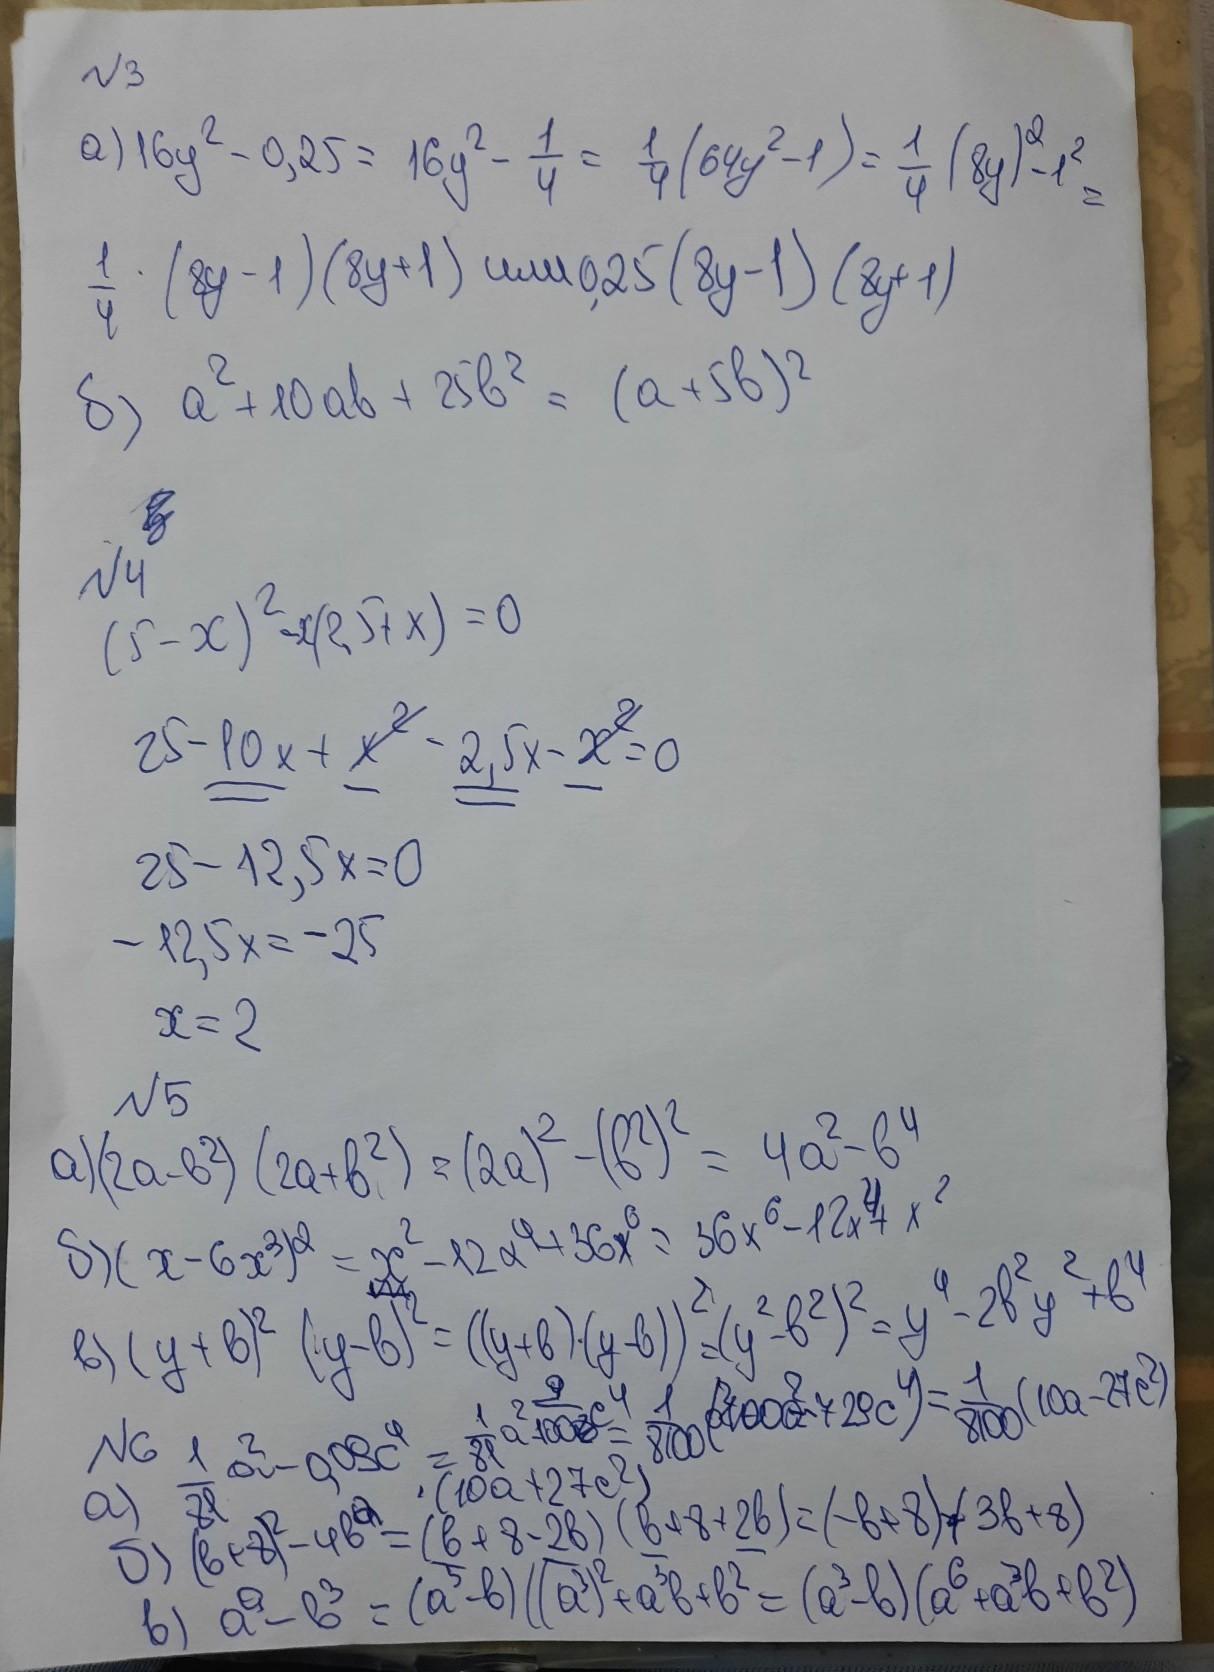 №3
а) 16y² - 0,25 = 16y² - 1/4 = 1/4 (64y² - 1) = 1/4 (8y)² - 1² =
1/4 · (8y - 1) (8y + 1) или 0,25 (8y - 1) (8y + 1)
б) a² + 10ab + 25b² = (a + 5b)²
№4
(5 - x)² - x(2,5 + x) = 0
25 - 10x + x² - 2,5x - x² = 0
25 - 12,5x = 0
- 12,5x = - 25
x = 2
№5
а) (2a - b²) (2a + b²) = (2a)² - (b²)² = 4a² - b⁴
б) (x - 6x³)² = x² - 12x⁴ + 36x⁶ = 36x⁶ - 12x⁴ + x²
в) (y + b)² (y - b)² = ((y + b) · (y - b))² = (y² - b²)² = y⁴ - 2b²y² + b⁴
№6
а) 1/81 a² - 0,09c⁴ = 1/81 a² 9/100 c⁴ = 1/8100 (100a² - 729c⁴) = 1/8100 (10a - 27c²)
· (10a + 27c²)
б) (b + 8)² - 4b² = (b + 8 - 2b) (b + 8 + 2b) = (-b + 8) (3b + 8)
в) a⁹ - b³ = (a³ - b) ((a³)² + a³b + b² = (a³ - b) (a⁶ + a³b + b²)